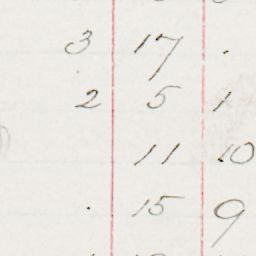 3 17 .
2 5 1
11 10
. 15 9